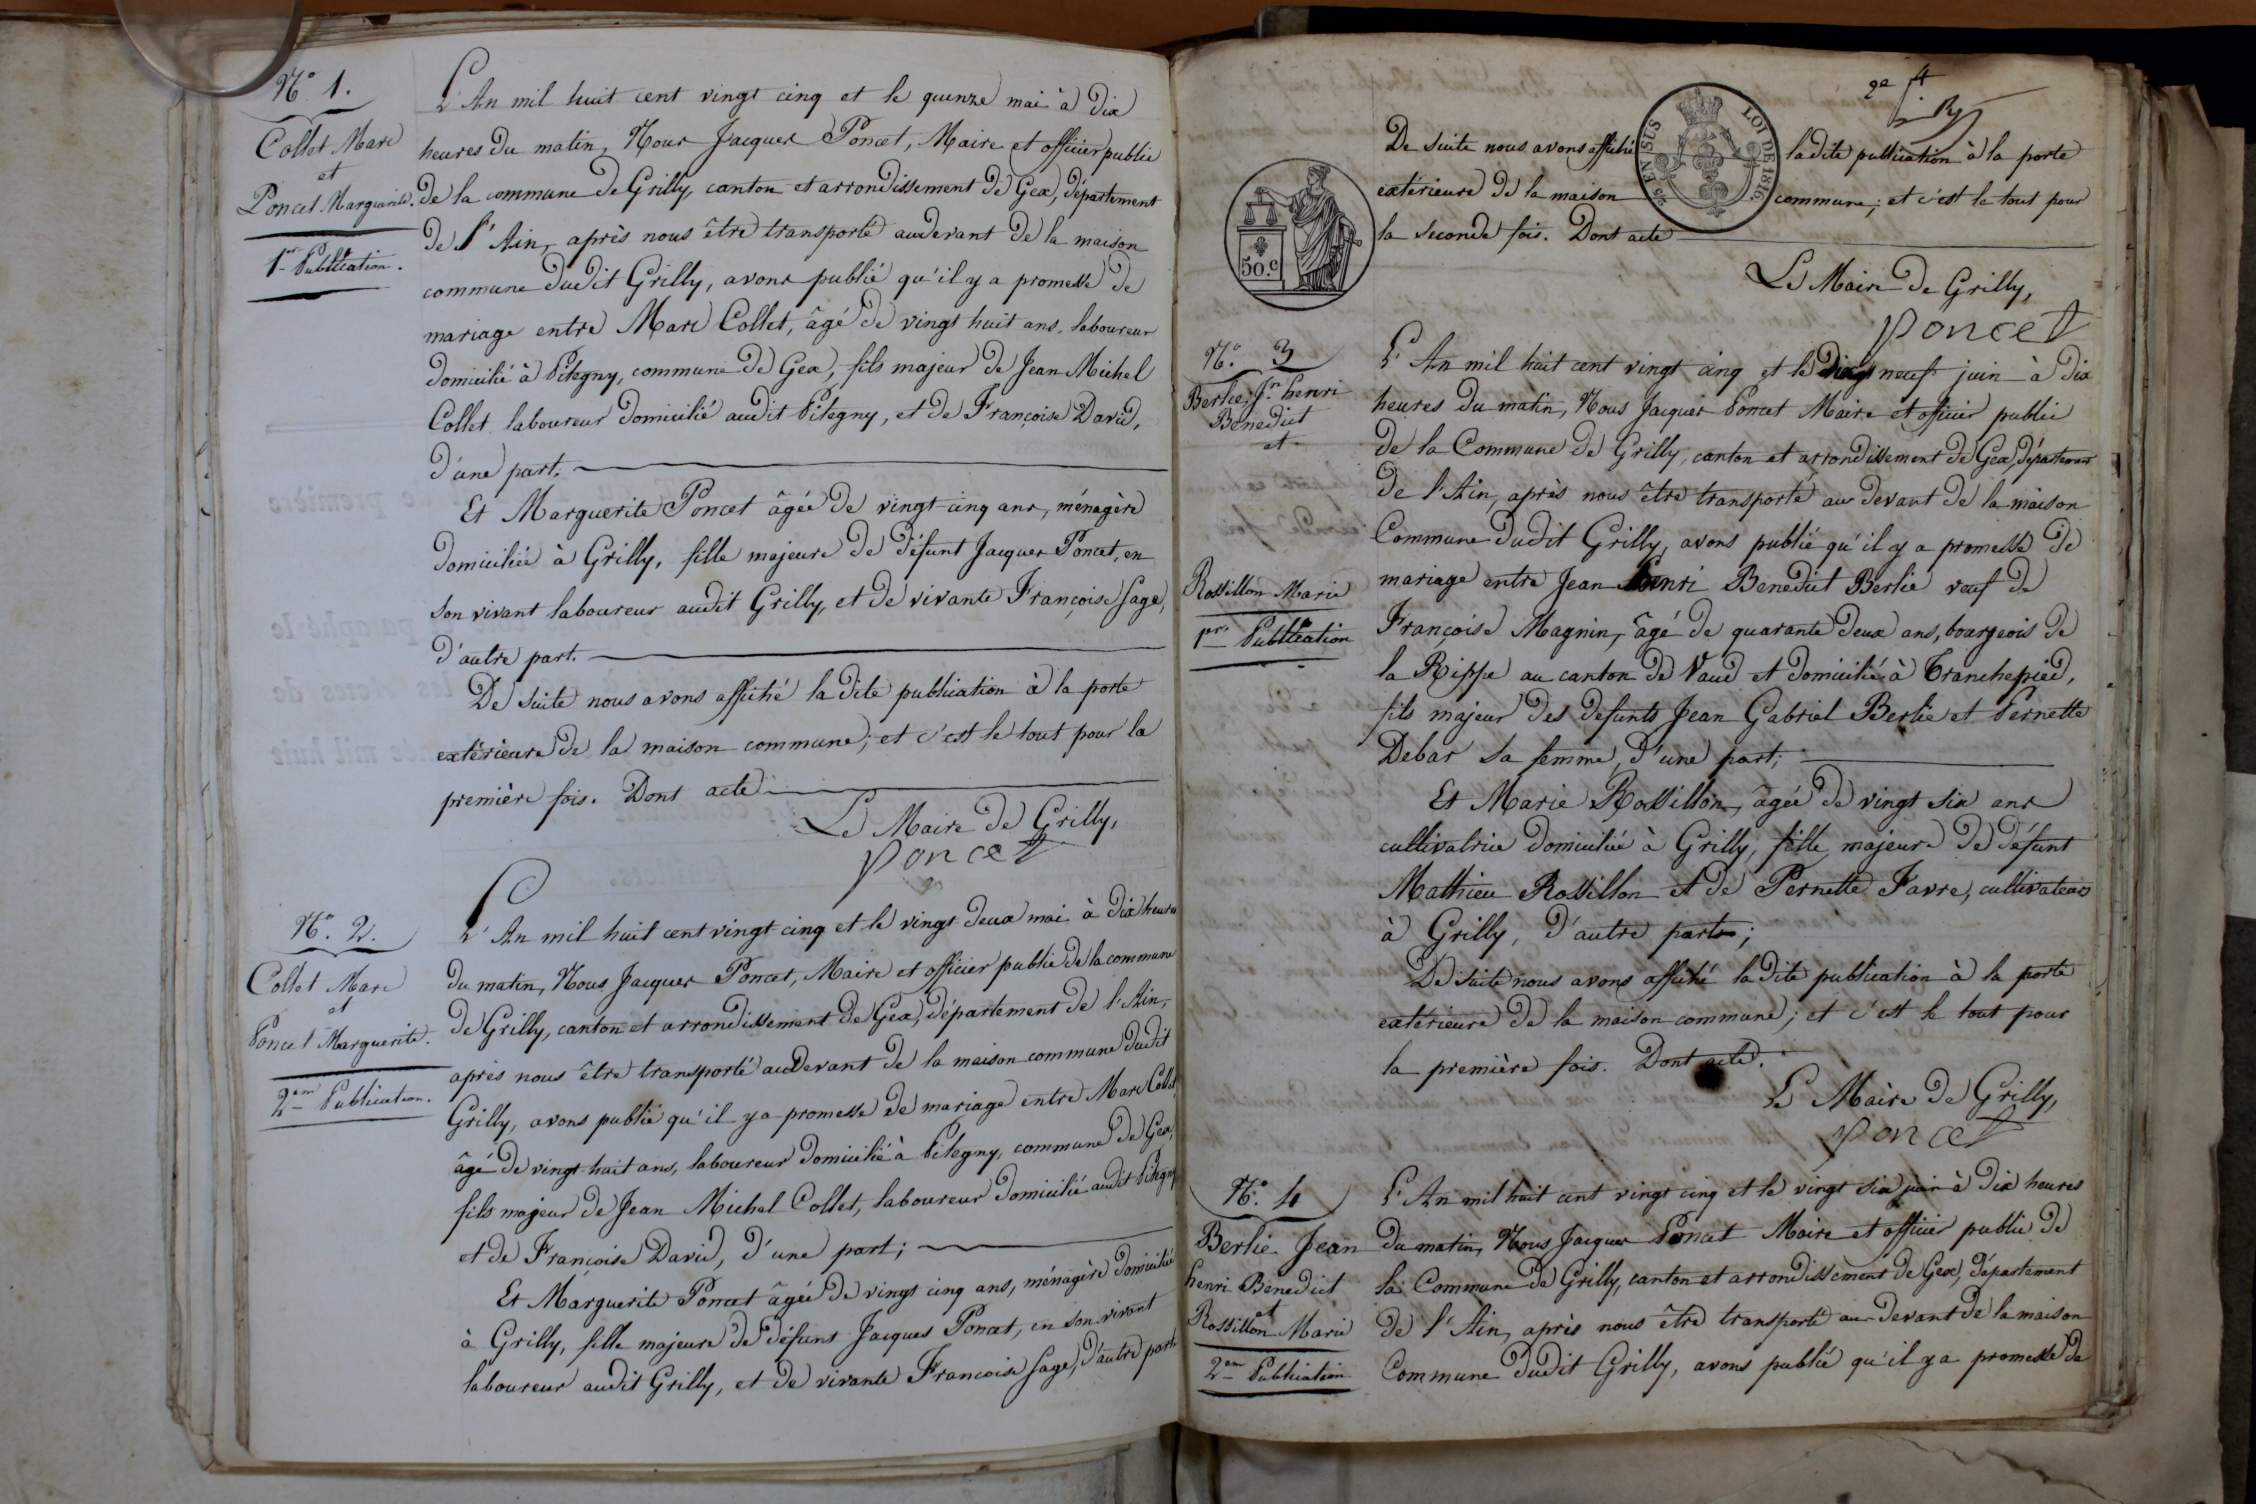 N.º 1.
Collet Marc
et
Poncet Marguerite.
1re Publication.
L'An mil huit cent vingt cinq et le quinze mai à dix
heures du matin, Nous Jacques Poncet, Maire et officier public
de la commune de Grilly, canton et arrondissement de Gex, département
de l'Ain, après nous être transporté audevant de la maison
commune dudit Grilly, avons publié qu'il y a promesse de
mariage entre Marc Collet, âgé de vingt huit ans, laboureur
domicilié à Pitegny, commune de Gex, fils majeur de Jean Michel
Collet laboureur domicilié audit Pitegny, et de Françoise David,
d'une part;
Et Marguerite Poncet âgée de vingt cinq ans, ménagère
domiciliée à Grilly, fille majeure de défunt Jacques Poncet, en
son vivant laboureur audit Grilly, et de vivante Françoise Sage,
d'autre part.
De suite nous avons affiché la dite publication à la porte
extérieure de la maison commune; et c'est le tout pour la
première fois. Dont acte
Le Maire de Grilly,
Poncet
N.º 2.
Collet Marc
et
Poncet Marguerite.
2em Publication.
L'An mil huit cent vingt cinq et le vingt deux mai à dix heures
du matin, Nous Jacques Poncet, Maire et officier public de la commune
de Grilly, canton et arrondissement de Gex, département de l'Ain,
après nous être transporté audevant de la maison commune dudit
Grilly, avons publié qu'il y a promesse de mariage entre Marc Collet
âgé de vingt huit ans, laboureur domicilié à Pitegny, commune de Gex,
fils majeur de Jean Michel Collet, laboureur domicilié audit Pitegny
et de Françoise David, d'une part;
Et Marguerite Poncet âgée de vingt cinq ans, ménagère domiciliée
à Grilly, fille majeure de défunt Jacques Poncet, en son vivant
laboureur audit Grilly, et de vivante Françoise Sage, d'autre part
2e ft
De suite nous avons affiché la dite publication à la porte
extérieure de la maison commune; et c'est le tout pour
la seconde fois. Dont acte
50.c
EN SUS
LOI DE 1816
Le Maire de Grilly,
Poncet
N.º 3
Berlie Jn henri
Benedict
et
Rossillon Marie
1re Publication
L'An mil huit cent vingt cinq et le dix neuf juin à dix
heures du matin, Nous Jacques Poncet Maire et officier public
de la Commune de Grilly, canton et arrondissement de Gex, département
de l'Ain, après nous être transporté au devant de la maison
Commune dudit Grilly, avons publié qu'il y a promesse de
mariage entre Jean henri Benedict Berlie veuf de
Françoise Magnin, âgé de quarante deux ans, bourgeois de
la Rippe au canton de Vaud et domicilié à Tranchepied,
fils majeur des defunts Jean Gabriel Berlie et Pernette
Debar sa femme, d'une part;
Et Marie Rossillon, âgée de vingt six ans
cultivatrice domiciliée à Grilly, fille majeure de défunt
Mathieu Rossillon et de Pernette Favre, cultivateurs
à Grilly, d'autre part;
De suite nous avons affiché la dite publication à la porte
extérieure de la maison commune; et c'est le tout pour
la première fois. Dont acte.
Le Maire de Grilly,
Poncet
N.º 4
Berlie Jean
henri Benedict
et
Rossillon Marie
2em Publication
L'An mil huit cent vingt cinq et le vingt six juin à dix heures
du matin, Nous Jacques Poncet Maire et officier public de
la Commune de Grilly, canton et arrondissement de Gex, département
de l'Ain, après nous être transporté au devant de la maison
Commune dudit Grilly, avons publié qu'il y a promesse de